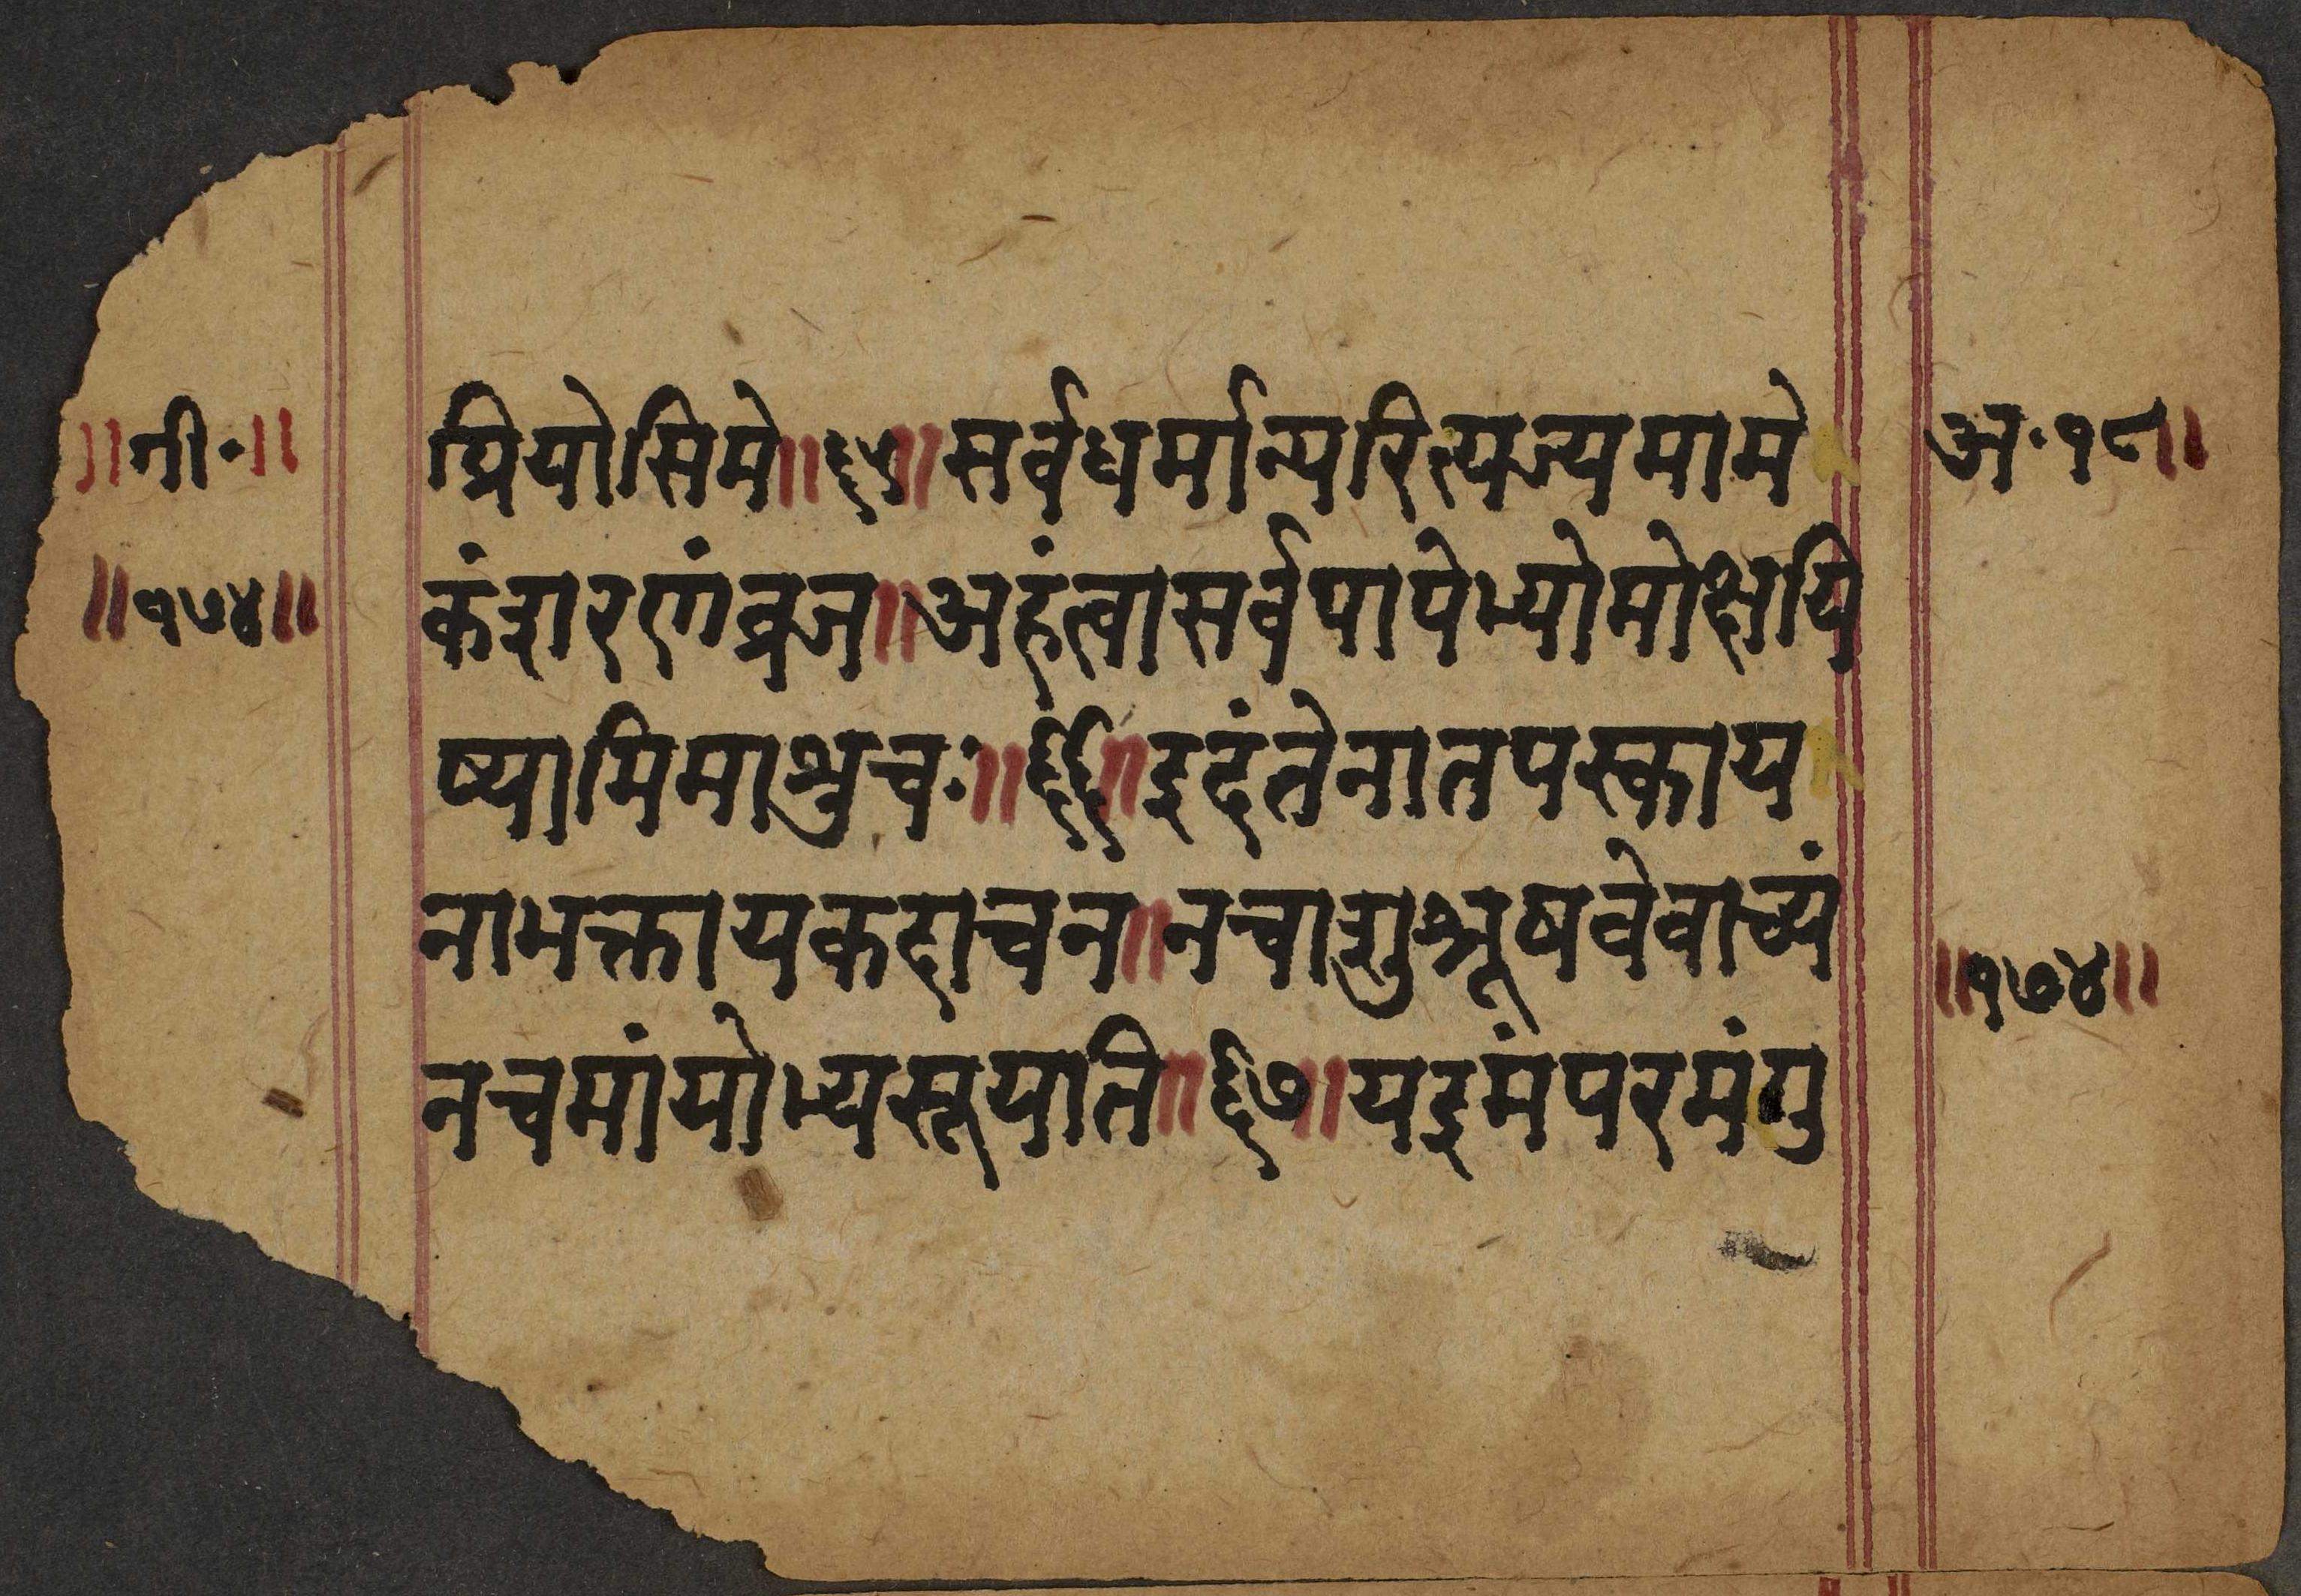 ॥गी॰॥
॥१७४॥
प्रियोसिमे॥६५॥सर्वधर्मान्परित्यज्यमामे
कंशरणंव्रज॥अहंत्वासर्वपापेभ्योमोक्षयि
ष्यामिमाशुचः॥६६॥इदंतेनातपस्काय
नाभक्तायकदाचन॥नचाशुश्रूषवेवाच्यं
नचमांयोभ्यसूयति॥६७॥यइमंपरमंगु
अ॰१८॥
॥१७४॥